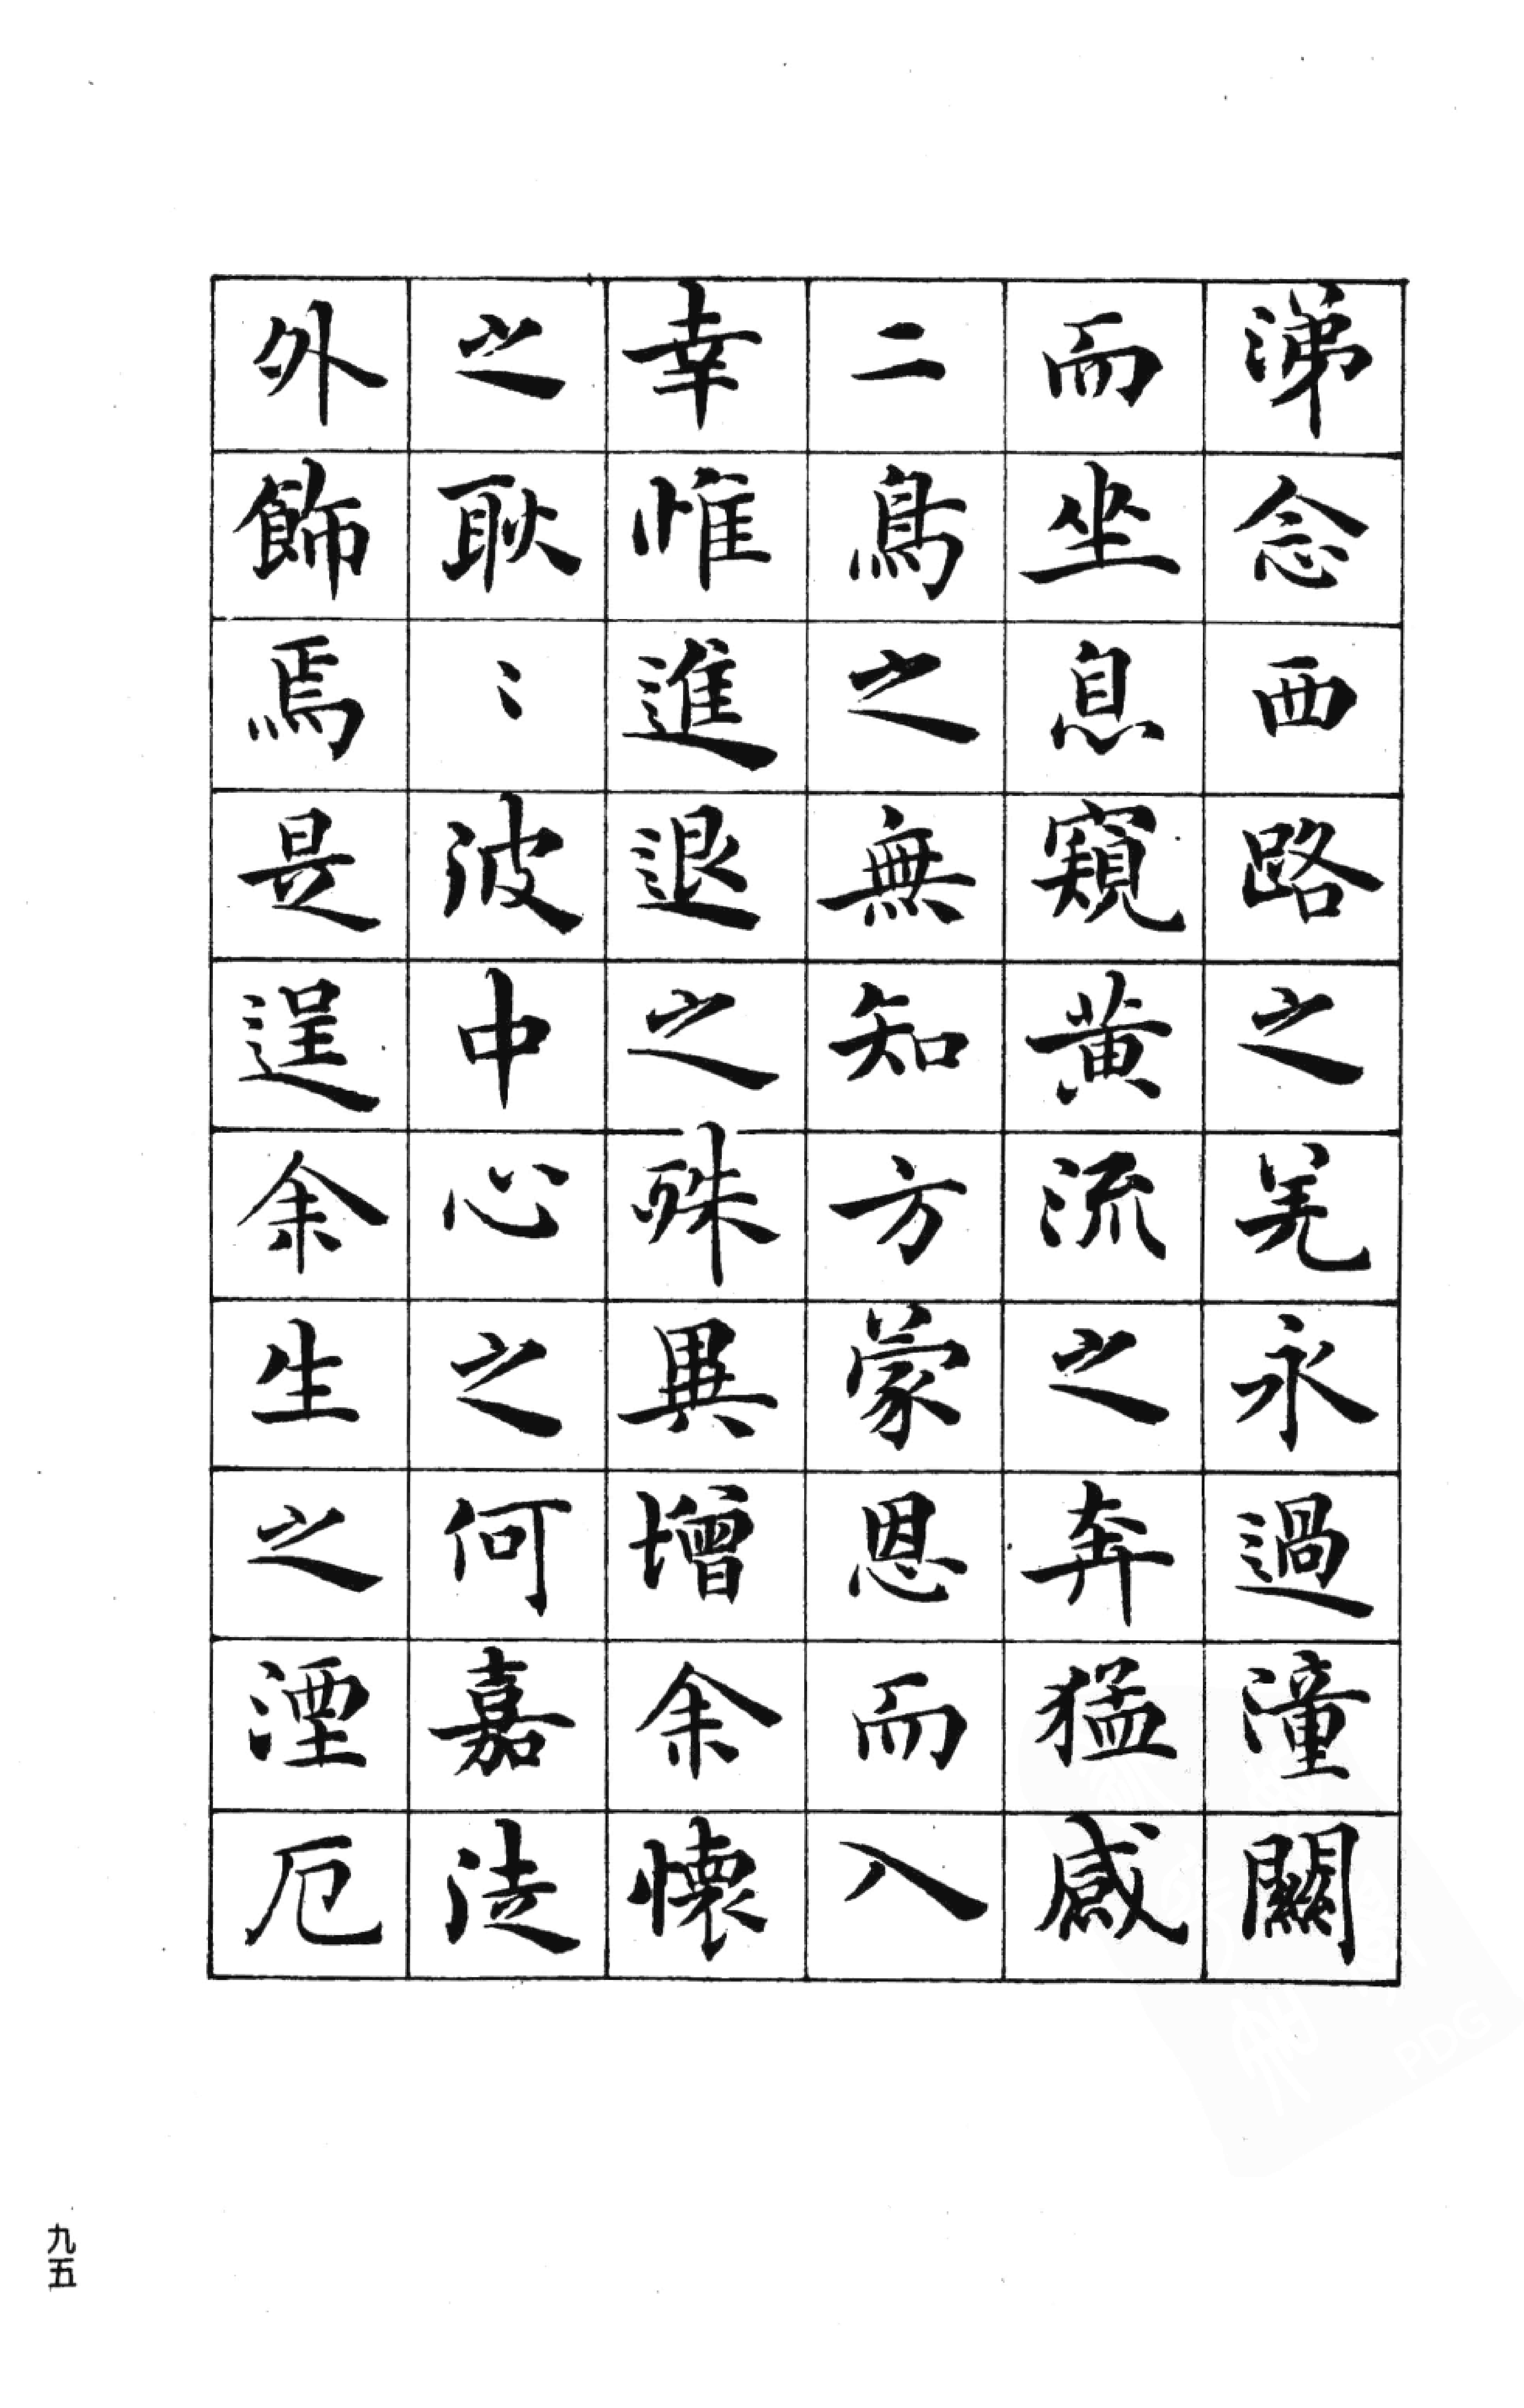 涕念西路之羌永過潼關
而坐息窺黃流之奔猛感
二鳥之無知方蒙恩而入
幸惟進退之殊異增余懷
之耿〻彼中心之何嘉徒
外飾焉是逞余生之湮厄
九五
PDG